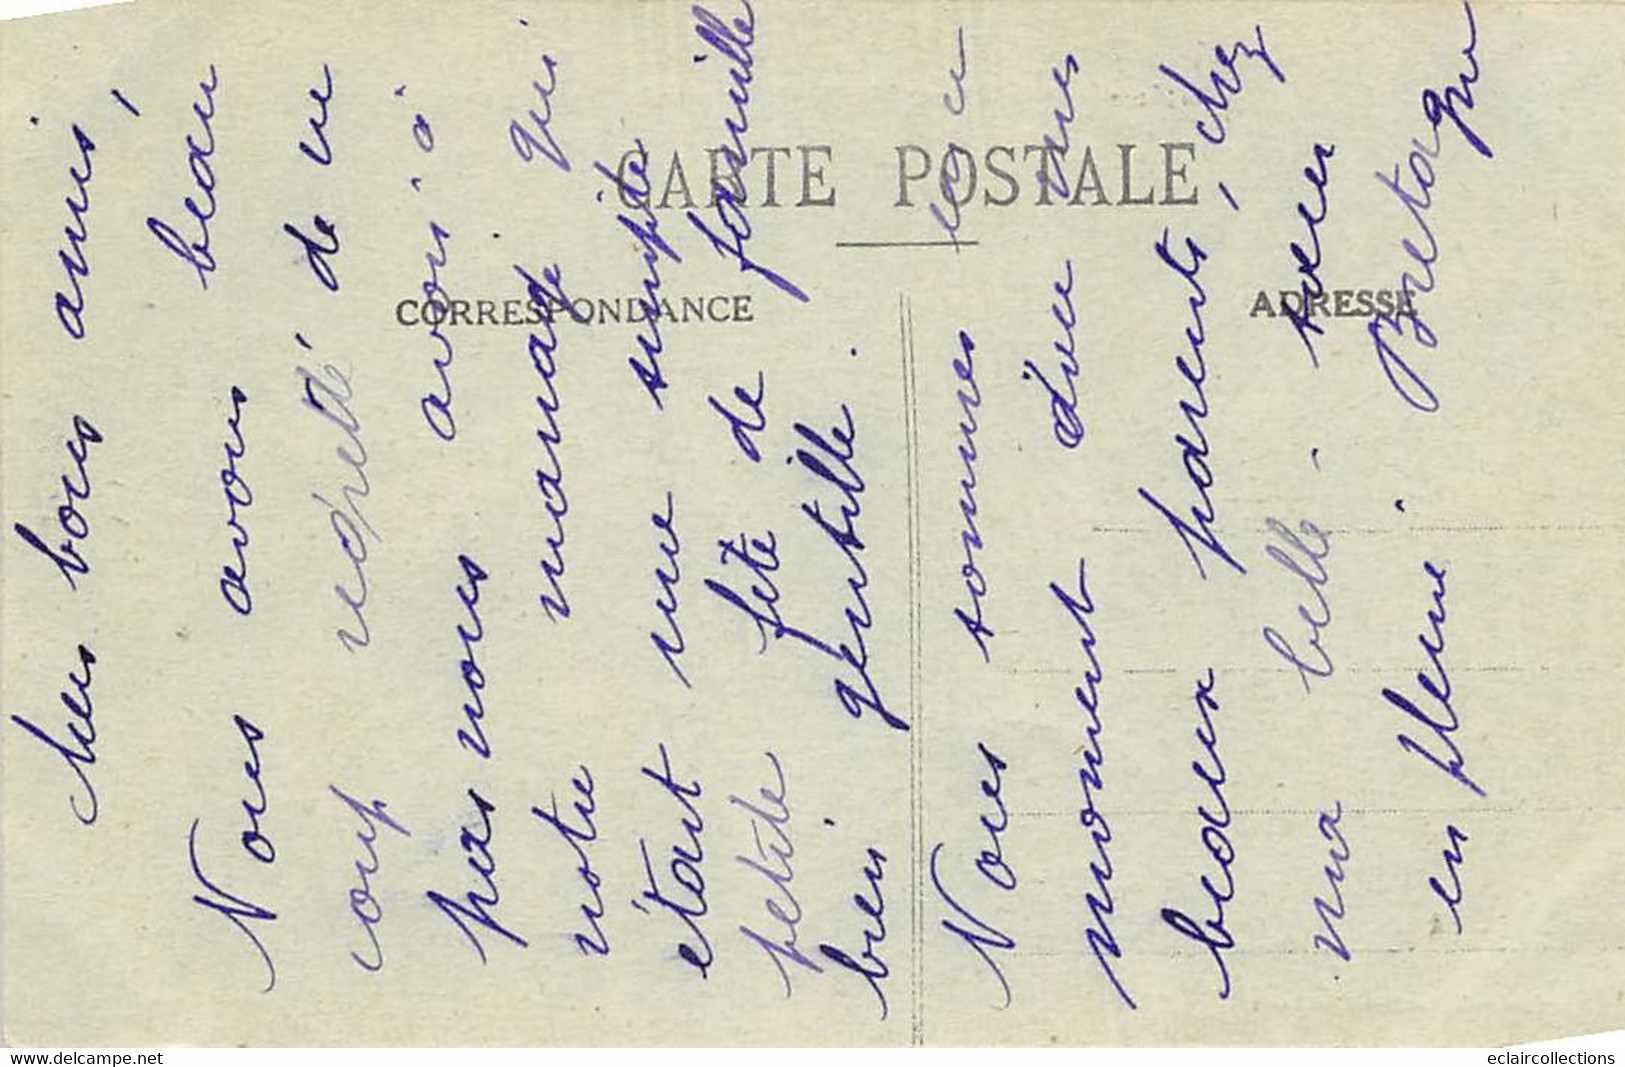 CARTE POSTALE
CORRESPONDANCE
ADRESSE
Mes bons amis,
Nous avons beau
coup regretté de ne
pas vous avoir à
notre mariage qui
étant une simple
petite fête de famille
bien gentille.
Nous sommes en ce
moment d'une mes
beaux parents, chez
ma belle-sœur
en pleine Bretagne
www.delcampe.net
eclaircollections